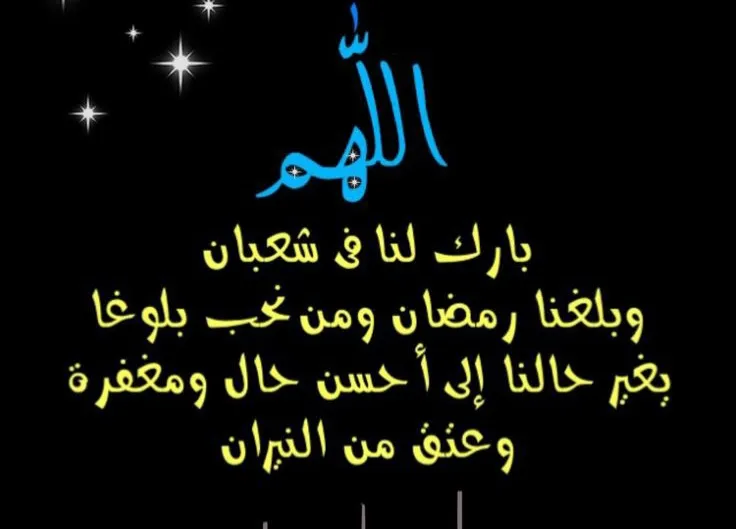 اللهم
بارك لنا في شعبان
وبلغنا رمضان ومن نحب بلوغا
يغير حالنا إلى أحسن حال ومغفرة
وعتق من النيران